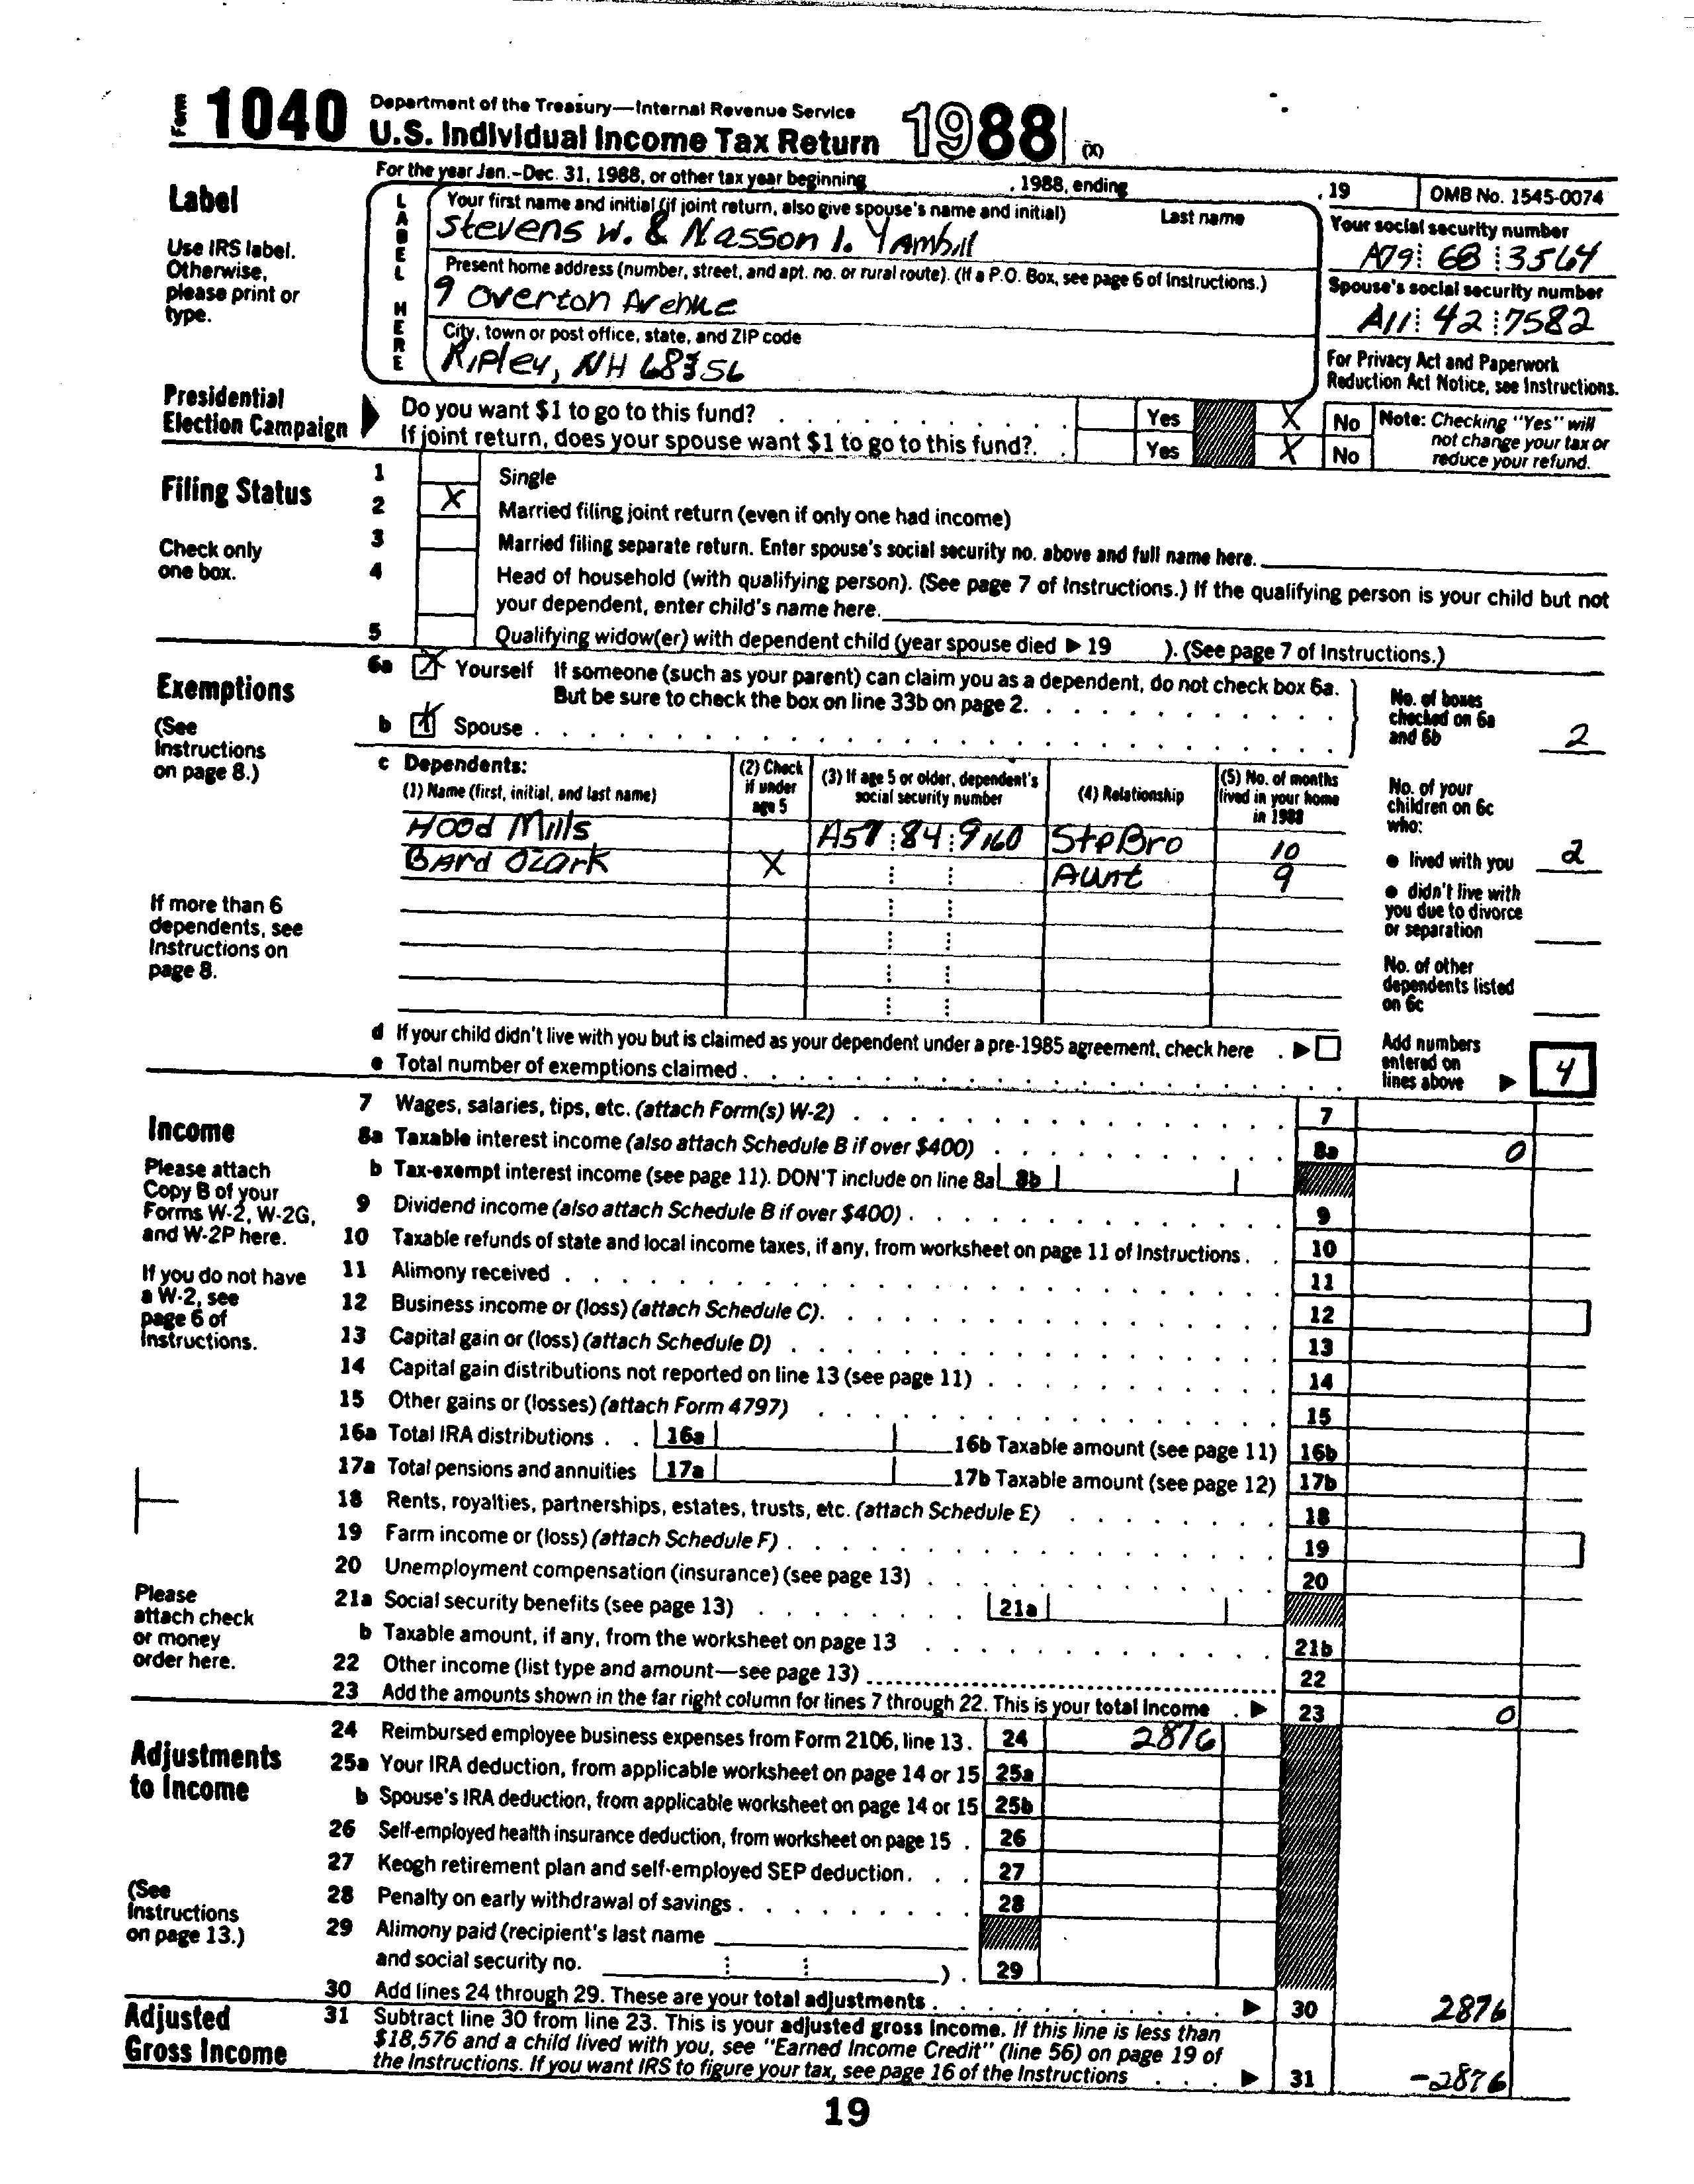 Form 1040 Department of the Treasury—Internal Revenue Service
U.S. Individual Income Tax Return 1988 (X)
For the year Jan.–Dec. 31, 1988, or other tax year beginning , 1988, ending , 19 OMB No. 1545-0074
Label
Use IRS label.
Otherwise,
please print or
type.
LABEL HERE
Your first name and initial (if joint return, also give spouse's name and initial) Last name
Stevens W. & Nasson I. Yambill
Your social security number
A79 68 3564
Present home address (number, street, and apt. no. or rural route). (If a P.O. Box, see page 6 of Instructions.)
9 Overton Avenue
Spouse's social security number
A11 42 7582
City, town or post office, state, and ZIP code
Ripley, NH
For Privacy Act and Paperwork
Reduction Act Notice, see Instructions.
Presidential
Election Campaign
Do you want $1 to go to this fund? Yes X No
If joint return, does your spouse want $1 to go to this fund?. Yes X No
Note: Checking "Yes" will
not change your tax or
reduce your refund.
Filing Status
Check only
one box.
1 Single
2 X Married filing joint return (even if only one had income)
3 Married filing separate return. Enter spouse's social security no. above and full name here.
4 Head of household (with qualifying person). (See page 7 of Instructions.) If the qualifying person is your child but not
your dependent, enter child's name here.
5 Qualifying widow(er) with dependent child (year spouse died ▶ 19 ). (See page 7 of Instructions.)
Exemptions
(See
Instructions
on page 8.)
6a X Yourself If someone (such as your parent) can claim you as a dependent, do not check box 6a.
But be sure to check the box on line 33b on page 2.
b X Spouse
No. of boxes
checked on 6a
and 6b 2
c Dependents:
(1) Name (first, initial, and last name)
(2) Check
if under
age 5
(3) If age 5 or older, dependent's
social security number
(4) Relationship
(5) No. of months
lived in your home
in 1988
Hood Mills A57 84 9160 StpBro 10
Bard Ozark X Aunt 9
If more than 6
dependents, see
Instructions on
page 8.
No. of your
children on 6c
who:
● lived with you 2
● didn't live with
you due to divorce
or separation
No. of other
dependents listed
on 6c
d If your child didn't live with you but is claimed as your dependent under a pre-1985 agreement, check here . ▶
e Total number of exemptions claimed
Add numbers
entered on
lines above ▶ 4
Income
Please attach
Copy B of your
Forms W-2, W-2G,
and W-2P here.
If you do not have
a W-2, see
page 6 of
Instructions.
Please
attach check
or money
order here.
7 Wages, salaries, tips, etc. (attach Form(s) W-2) 7
8a Taxable interest income (also attach Schedule B if over $400) 8a 0
b Tax-exempt interest income (see page 11). DON'T include on line 8a 8b
9 Dividend income (also attach Schedule B if over $400) 9
10 Taxable refunds of state and local income taxes, if any, from worksheet on page 11 of Instructions 10
11 Alimony received 11
12 Business income or (loss) (attach Schedule C). 12
13 Capital gain or (loss) (attach Schedule D) 13
14 Capital gain distributions not reported on line 13 (see page 11) 14
15 Other gains or (losses) (attach Form 4797) 15
16a Total IRA distributions 16a 16b Taxable amount (see page 11) 16b
17a Total pensions and annuities 17a 17b Taxable amount (see page 12) 17b
18 Rents, royalties, partnerships, estates, trusts, etc. (attach Schedule E) 18
19 Farm income or (loss) (attach Schedule F) 19
20 Unemployment compensation (insurance) (see page 13) 20
21a Social security benefits (see page 13) 21a
b Taxable amount, if any, from the worksheet on page 13 21b
22 Other income (list type and amount—see page 13) 22
23 Add the amounts shown in the far right column for lines 7 through 22. This is your total income ▶ 23 0
Adjustments
to Income
(See
Instructions
on page 13.)
24 Reimbursed employee business expenses from Form 2106, line 13. 24 2876
25a Your IRA deduction, from applicable worksheet on page 14 or 15 25a
b Spouse's IRA deduction, from applicable worksheet on page 14 or 15 25b
26 Self-employed health insurance deduction, from worksheet on page 15 26
27 Keogh retirement plan and self-employed SEP deduction 27
28 Penalty on early withdrawal of savings 28
29 Alimony paid (recipient's last name
and social security no. ) 29
30 Add lines 24 through 29. These are your total adjustments ▶ 30 2876
Adjusted
Gross Income
31 Subtract line 30 from line 23. This is your adjusted gross income. If this line is less than
$18,576 and a child lived with you, see "Earned Income Credit" (line 56) on page 19 of
the Instructions. If you want IRS to figure your tax, see page 16 of the Instructions ▶ 31 -2876
19